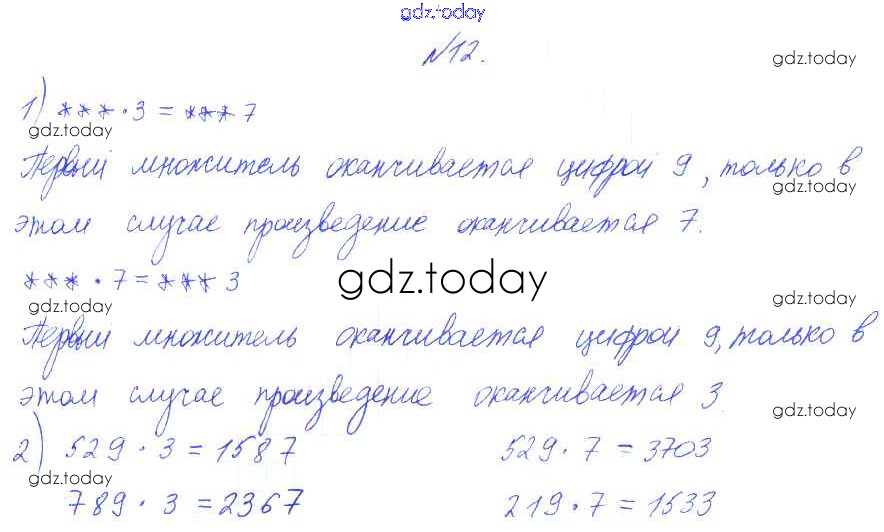 gdz.today
№12.
gdz.today
1) *** · 3 = *** 7
gdz.today
Первый множитель оканчивается цифрой 9, только в
gdz.today
этом случае произведение оканчивается 7.
*** · 7 = *** 3
gdz.today
gdz.today
gdz.today
Первый множитель оканчивается цифрой 9, только в
этом случае произведение оканчивается 3
gdz.today
2) 529 · 3 = 1587 529 · 7 = 3703
gdz.today
789 · 3 = 2367 219 · 7 = 1533